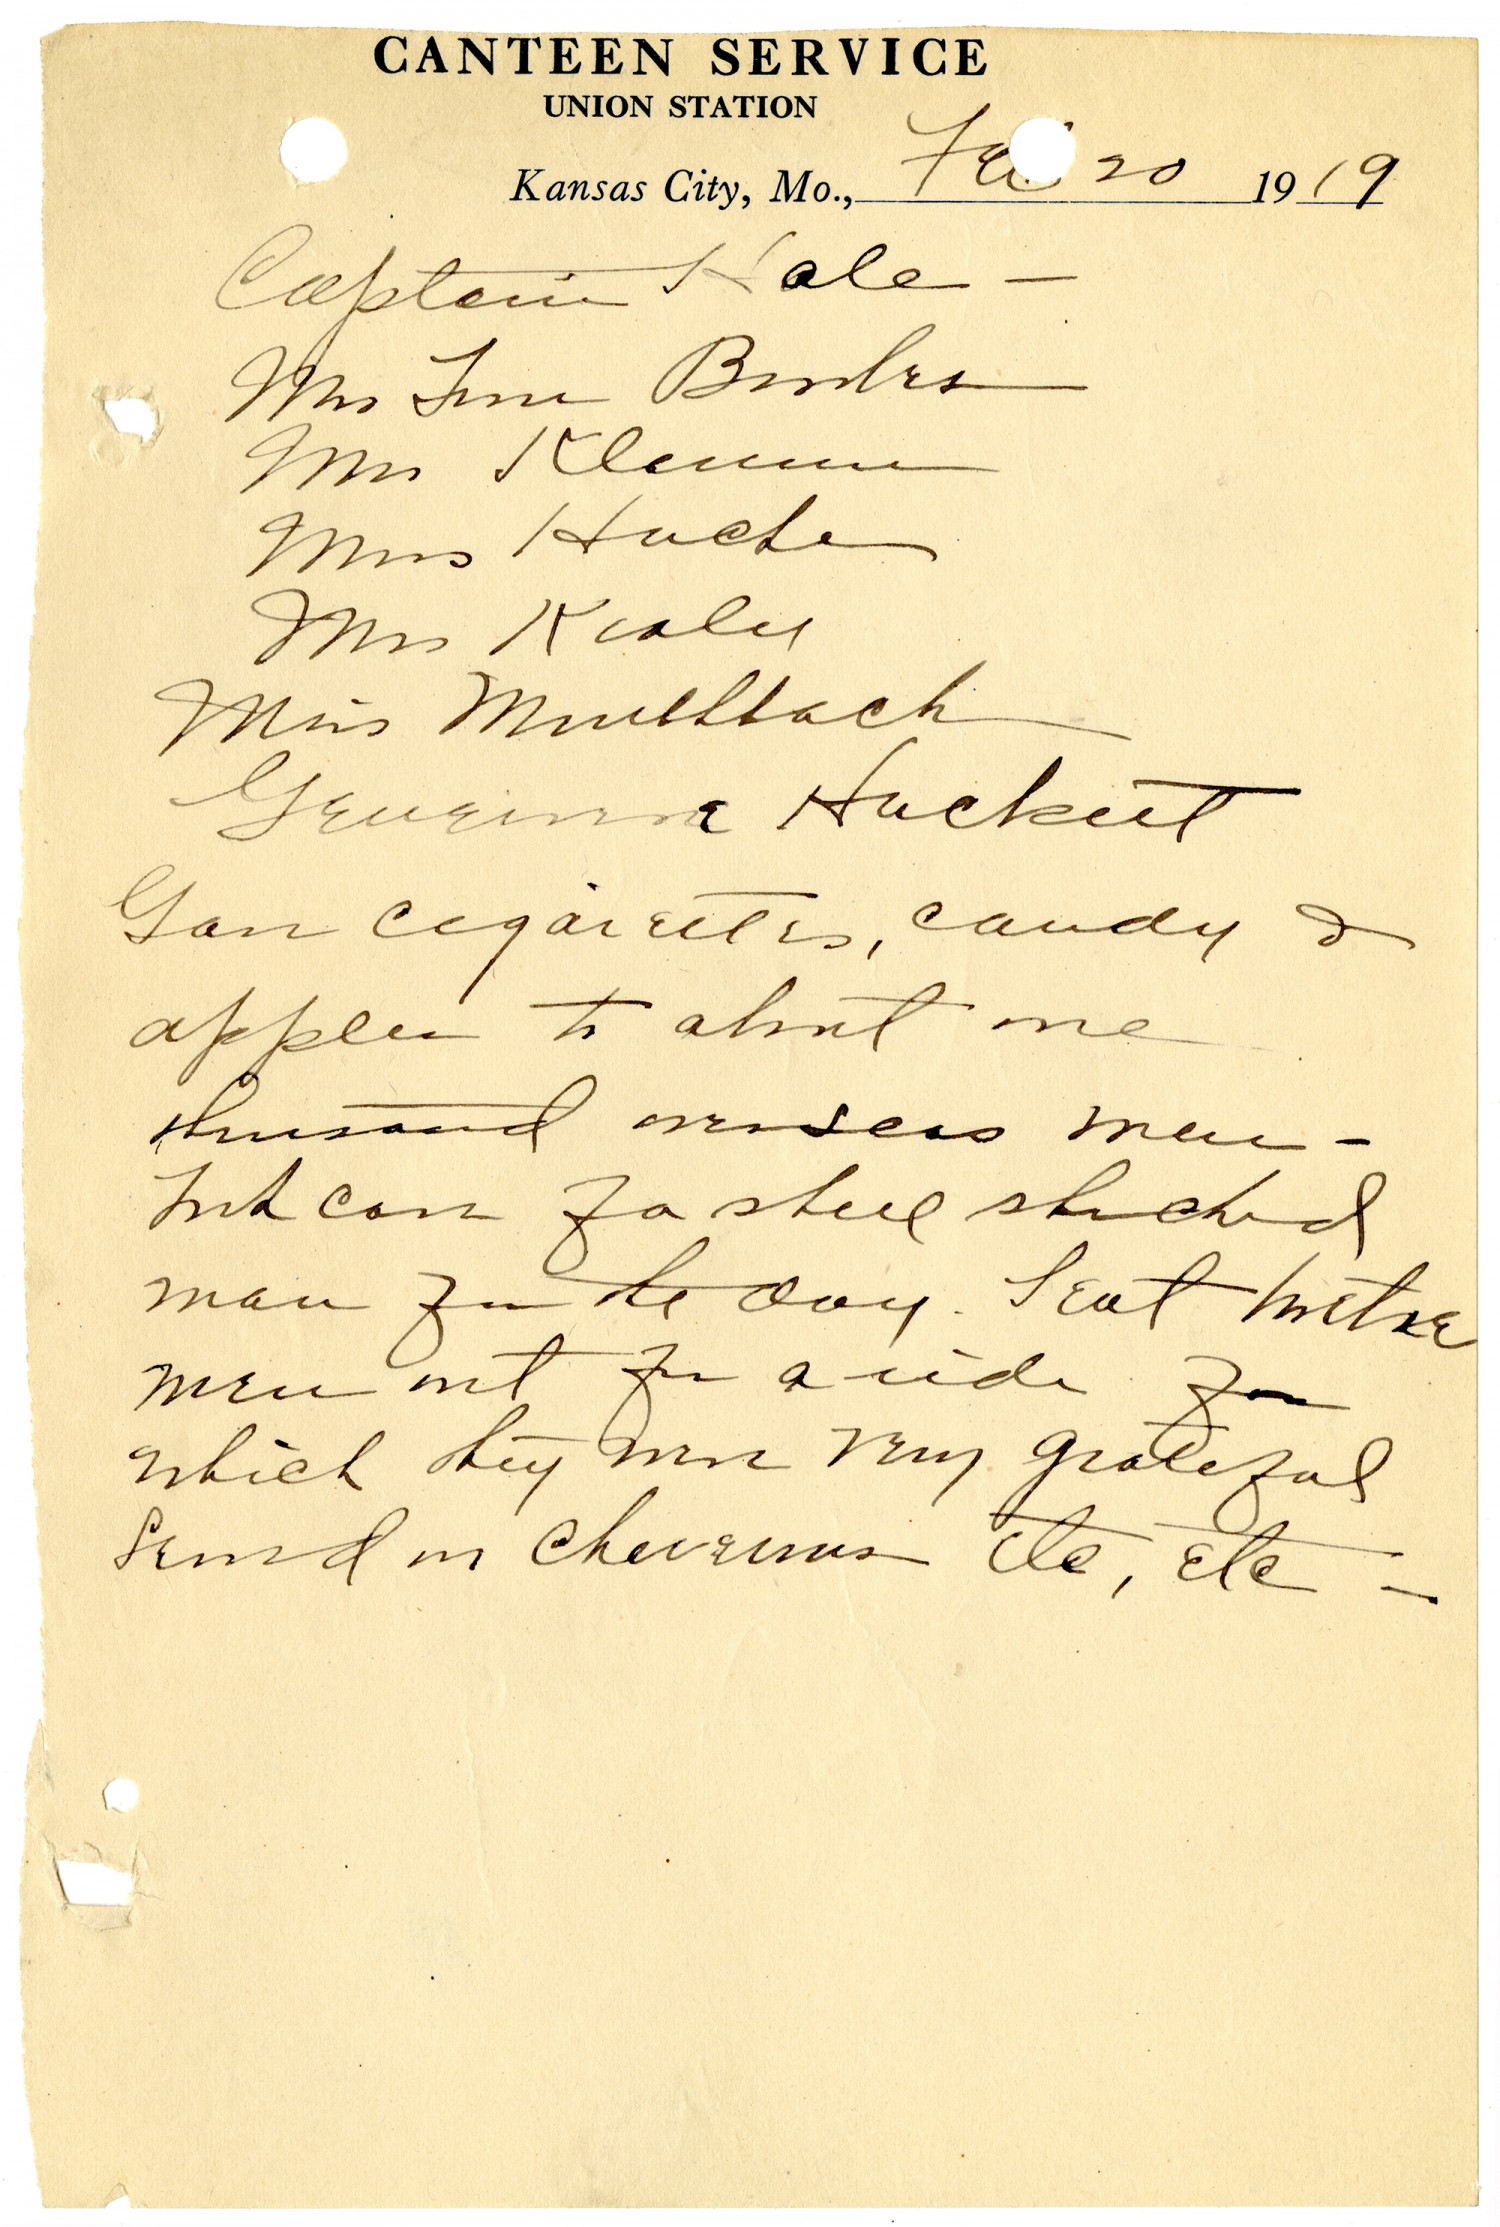 CANTEEN SERVICE
UNION STATION
Kansas City, Mo., Feb 20 1919
Captain Hale –
Mrs
Mrs
Mrs
Mrs Kealy
Miss Muehlbach
Hackett
Gave cigarettes, candy &
apples to about one
thousand overseas men –
Took care of a shell shocked
man for the day. Sent twelve
men out for a ride for
which they were very grateful
Sewed on cheverons etc, etc –